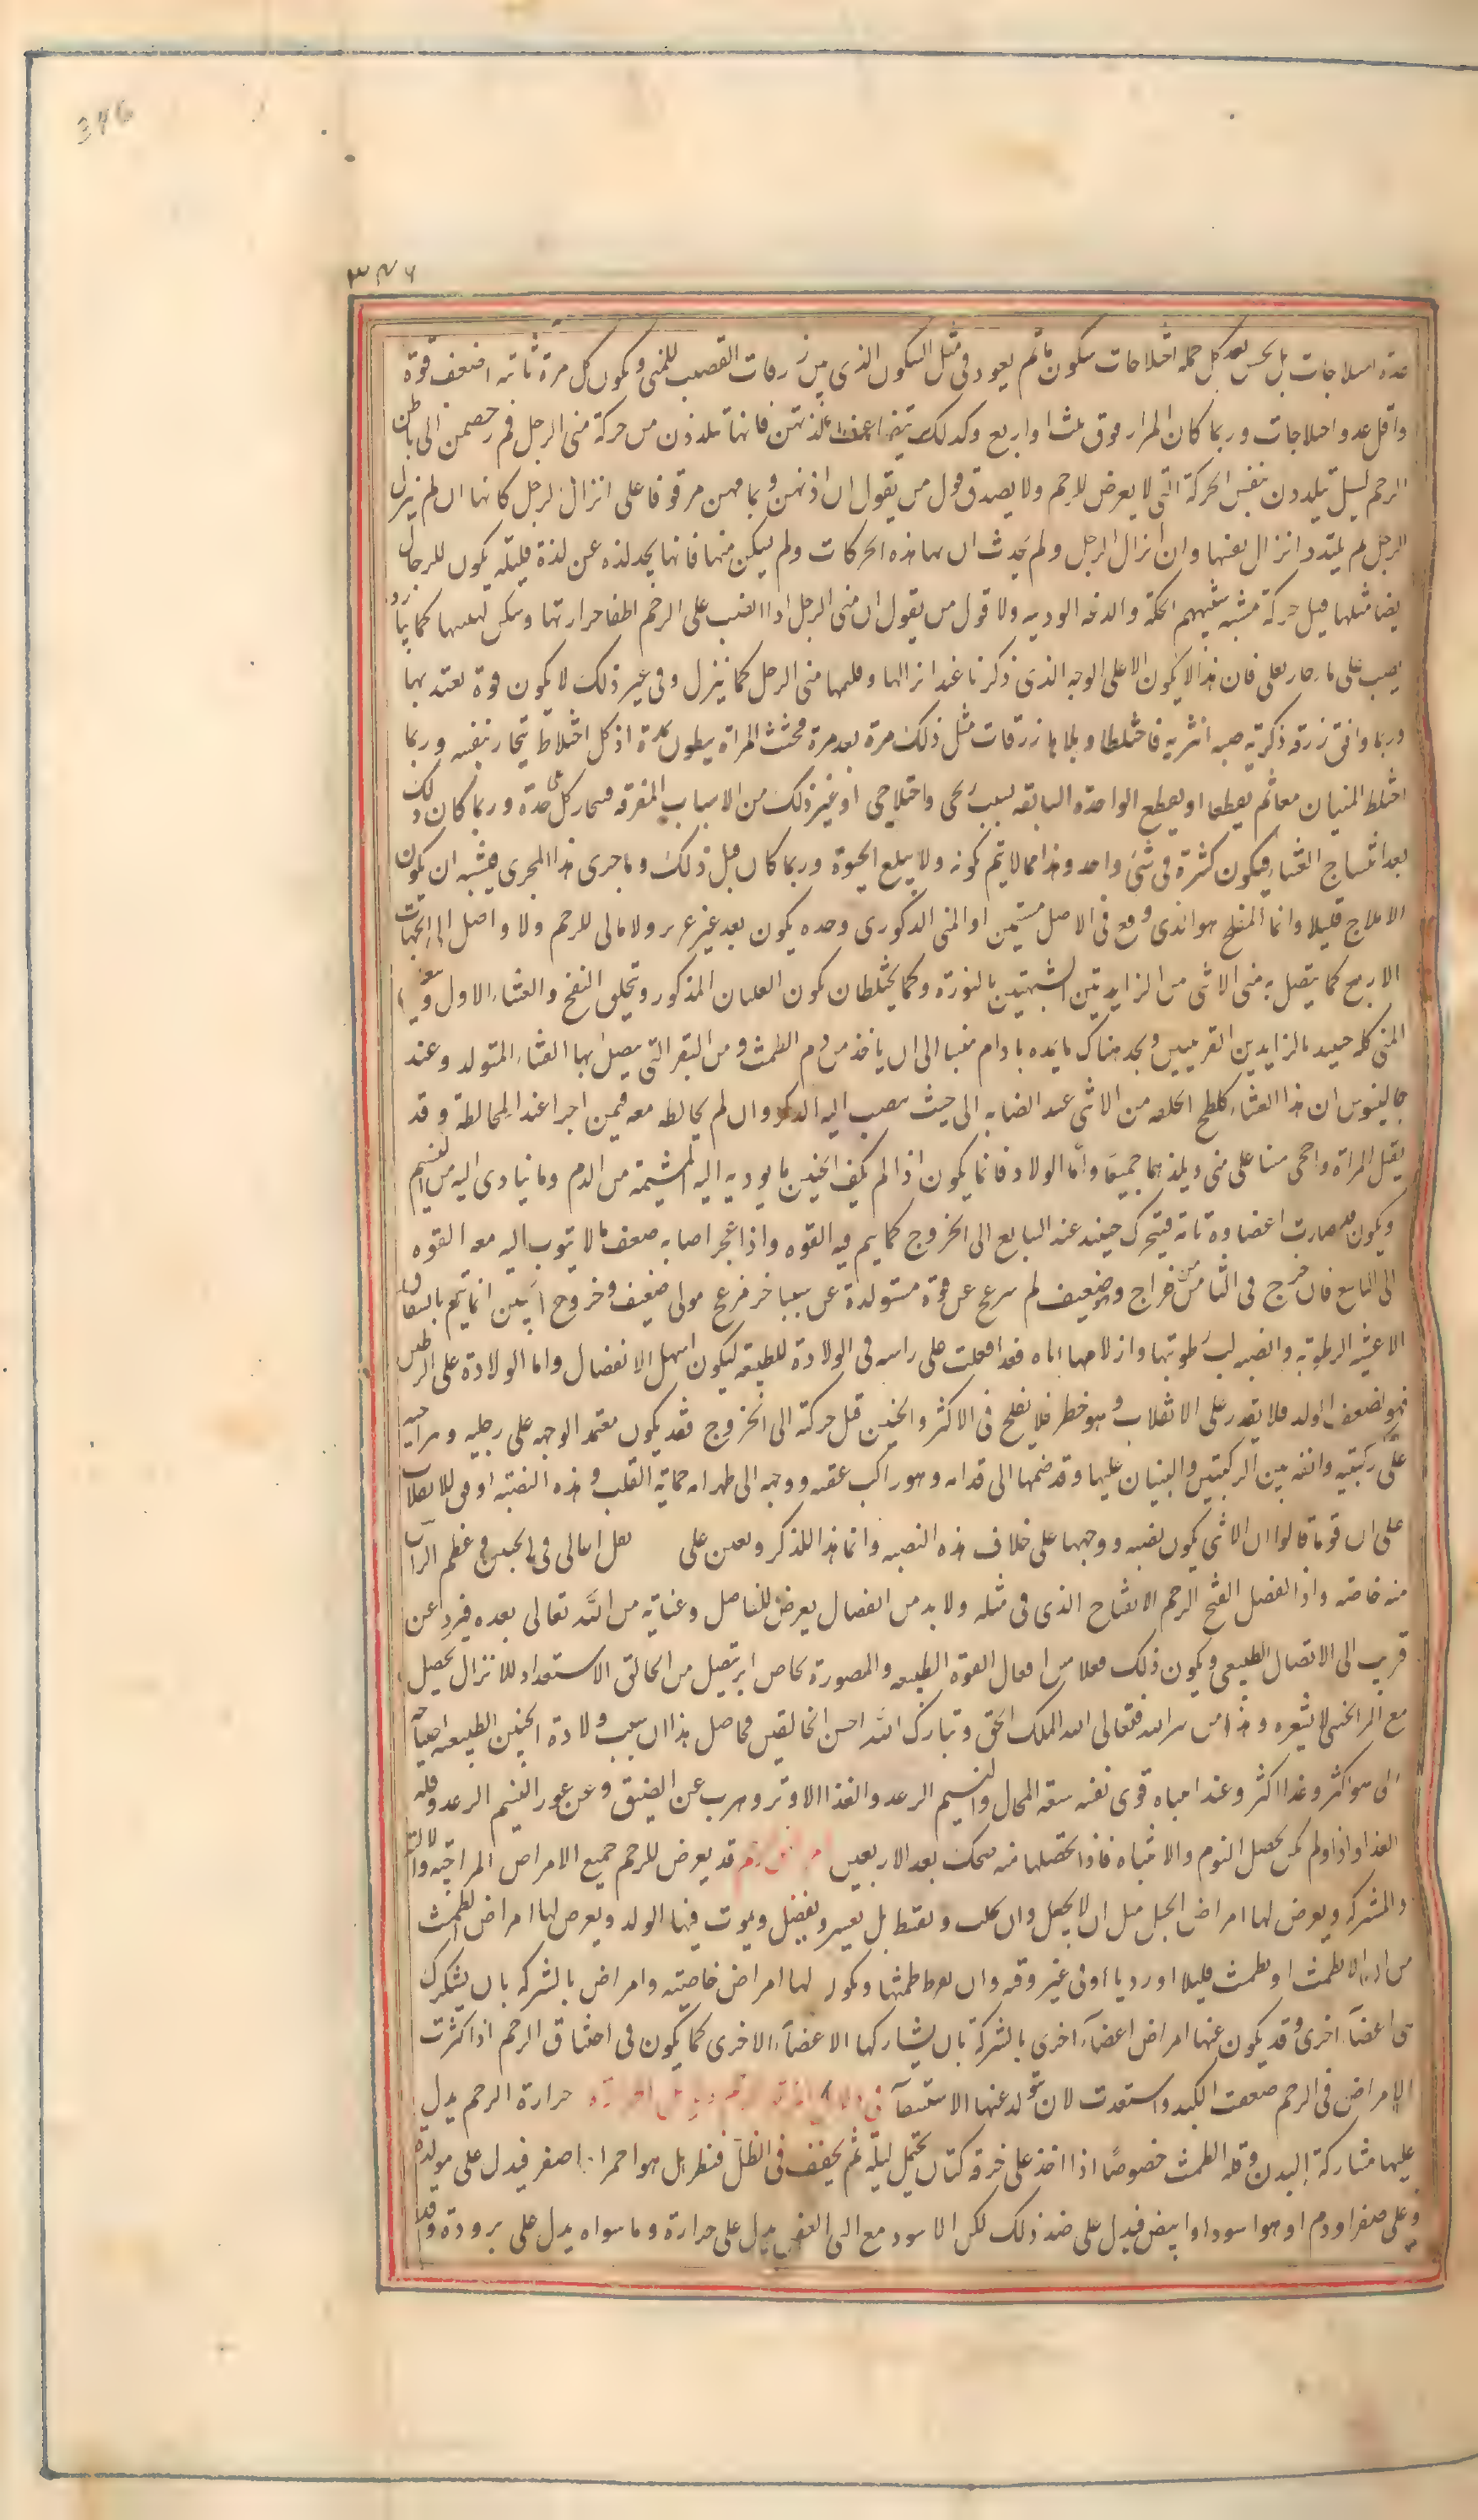 346
۳۴۶
عدة اختلاجات بل يحس بعد كل جملة اختلاجات سكون ما ثم يعود في مثل السكون الذي بين زرقات القضيب للمني ويكون كل مرة ثانية اضعف قوة
واقل عدد اختلاجات وربما كان المرار فوق ثلث او اربع وكذلك يتضاعف لذتهن فانها تتلذذن من حركة مني الرجل في رحمهن الى باطن
الرحم بل يتلذذن بنفس الحركة التي لا يعرض للرحم ولا يصدق قول من يقول ان لذتهن وتمامهن موقوفا على انزال الرجل كانها ان لم ينزل
الرجل لم يلتذ دانزال نفسها وان انزال الرجل ولم يحدث ان بها هذه الحركات ولم يسكن منها فانها يجد لذة عن لذة قليلة يكون للرجال
ايضا مثلها قبل حركة منيه شبيهم الحكة والدغدغة الودية ولا قول من يقول ان مني الرجل اذا انصب على الرحم اطفا حرارتها وسكن لهيبها كما بارد
يصب على ما حار يغلى فان هذا لا يكون الا على الوجه الذي ذكرنا عند انزالها وبلعها مني الرجل كما ينزل وفي غير ذلك لا يكون قوة يعتد بها
وربما وافق زرقة ذكرية صبه انثرية فاختلطا وبلا بها زرقات مثل ذلك مرة بعد مرة فحثت المراة ببطون عدة اذ كل اختلاط ينحاز بنفسه وربما
اختلط المنيان معا ثم تقطعا او تقطع الواحدة السابقة بسبب ريحى واختلاجى او غير ذلك من الاسباب المفرقة فينحاز كل على حدة وربما كان ذلك
بعد انتساج الغشاء فيكون كثرة في شئ واحد وهذا مما لا يتم كونه ولا يبلغ الحيوة وربما كان قبل ذلك وما جرى هذا المجرى فيشبه ان يكون
الافلاح قليلا وانما المفلح هو الذي وقع في الاصل متميز او المني الذكورى وحده يكون بعد غير غزير ولا مالى للرحم ولا واصل الى الجهات
الاربع كما يتصل به مني الانثى من الزايدتين الشبيهتين بالنورة وكما يختلطان يكون الغليان المذكور ويتخلق النفخ والغشاء الاول ويتعلق
المني كله حينئذ بالزايدين القرنيين ويجد هناك ما يمده ما دام منيا الى ان ياخذ من دم الطمث ومن النقر التي يتصل بها الغشاء المتولد وعند
جالينوس ان هذا الغشاء كلطخ يخلفه مني الانثى عند انصبابه الى حيث ينصب اليه الذكر وان لم يخالطه معه فيمن اجرا عند المخالطة وقد
يقبل المراة واحى منا على مني ويلدهما جميعا واما الولاد فانما يكون اذا لم يكف الجنين ما يوديه اليه المشيمة من الدم وما يتادى اليه من النسيم
ويكون قد صارت اعضاوه تامة فيتحرك حينئذ عند السابع الى الخروج كما يتم فيه القوه واذا عجز اصابه ضعف ما لا يثوب اليه معه القوه
الى التاسع فان خرج في الثامن خراج وهو ضعيف لم يرج عن قوة مستولدة عن سبب اخر مزعج مولى ضعيف وخروج الجنين انما يتم بانشقاق
الاغشية الرطوبية وانصباب رطوبتها وازلاقها اياه فقد اقبلت على راسه في الولادة الطبيعية ليكون اسهل الانفصال واما الولادة على الرجلين
فهو لضعف الولد فلا يقدر على الانقلاب وهو خطر فلا يفلح في الاكثر والجنين قبل حركته الى الخروج فقد يكون معتمد الوجه على رجليه وبراحتيه
على ركبتيه وانفه بين الركبتين والعينان عليها وقد ضمها الى قدامه وهو راكب عقبه ووجهه الى ظهر امه حماية القلب وهذه النصبة اوفق للانقلاب
على ان قوما قالوا ان الانثى يكون نصبه ووجهها على خلاف هذه النصبه وانما هذا للذكر ويعين على ثقل اعالى في الجنين وعظم الراس
منه خاصة واذا انفصل انفتح الرحم الانفتاح الذي في مثله ولا بد من انفصال يعرض للمفاصل وعناية من الله تعالى بعده فيرد عن
قريب الى الاتصال الطبيعي ويكون ذلك فعلا من افعال القوة الطبيعه والمصورة بخاص امر يتصل من الخالق الاستعداد للانزال يحصل
مع امر الخفي لا يشعره وهذا من سر الله فتعالى الله الملك الحق وتبارك الله احسن الخالقين فحاصل هذا ان سبب ولادة الجنين الطبيعه احتياجه
الى هوا اكثر وغذا اكثر وعند انتباه قوى نفسه سعة المجال والنسيم الرعد والغذا الاوفر وهرب عن الضيق وعن عوز النسيم الرعد وقلة
الغذا واذا ولد لم يكن يحصل النوم والانتباه فاذا تحصلها منه ضحك بعد الاربعين امراض الرحم قد يعرض للرحم جميع الامراض المزاجية والالية
والمشتركه ويعرض لها امراض الحبل مثل ان لا يحبل وان تحبل وتسقط بل يعسر ويعضل ويموت فيها الولد ويعرض لها امراض الطمث
من ان لا تطمث او تطمث قليلا او رديا او في غير وقته وان يفرط طمثها ويكون لها امراض خاصية وامراض بالشركة بان يشارك
هي اعضآء اخرى وقد يكون عنها امراض اعضآء اخرى بالشركة بان يشاركها الاعضآء الاخرى كما يكون في اختناق الرحم اذا كثرت
الامراض في الرحم ضعفت الكبد واستعدت لان يتولد عنها الاستسقآ حرارة الرحم يدل
عليها مشاركة البدن وقلة الطمث خصوصا اذا اخذ على خرقة كتان يحتمل ليله ثم يجفف في الظل فنظر بل هو احمر او اصفر فيدل على مولده
وعلى صفرا ودم او هو اسود او ابيض فيدل على ضد ذلك لكن الاسود مع النتن العفن يدل على حرارة وما سواه يدل على برودة وقد